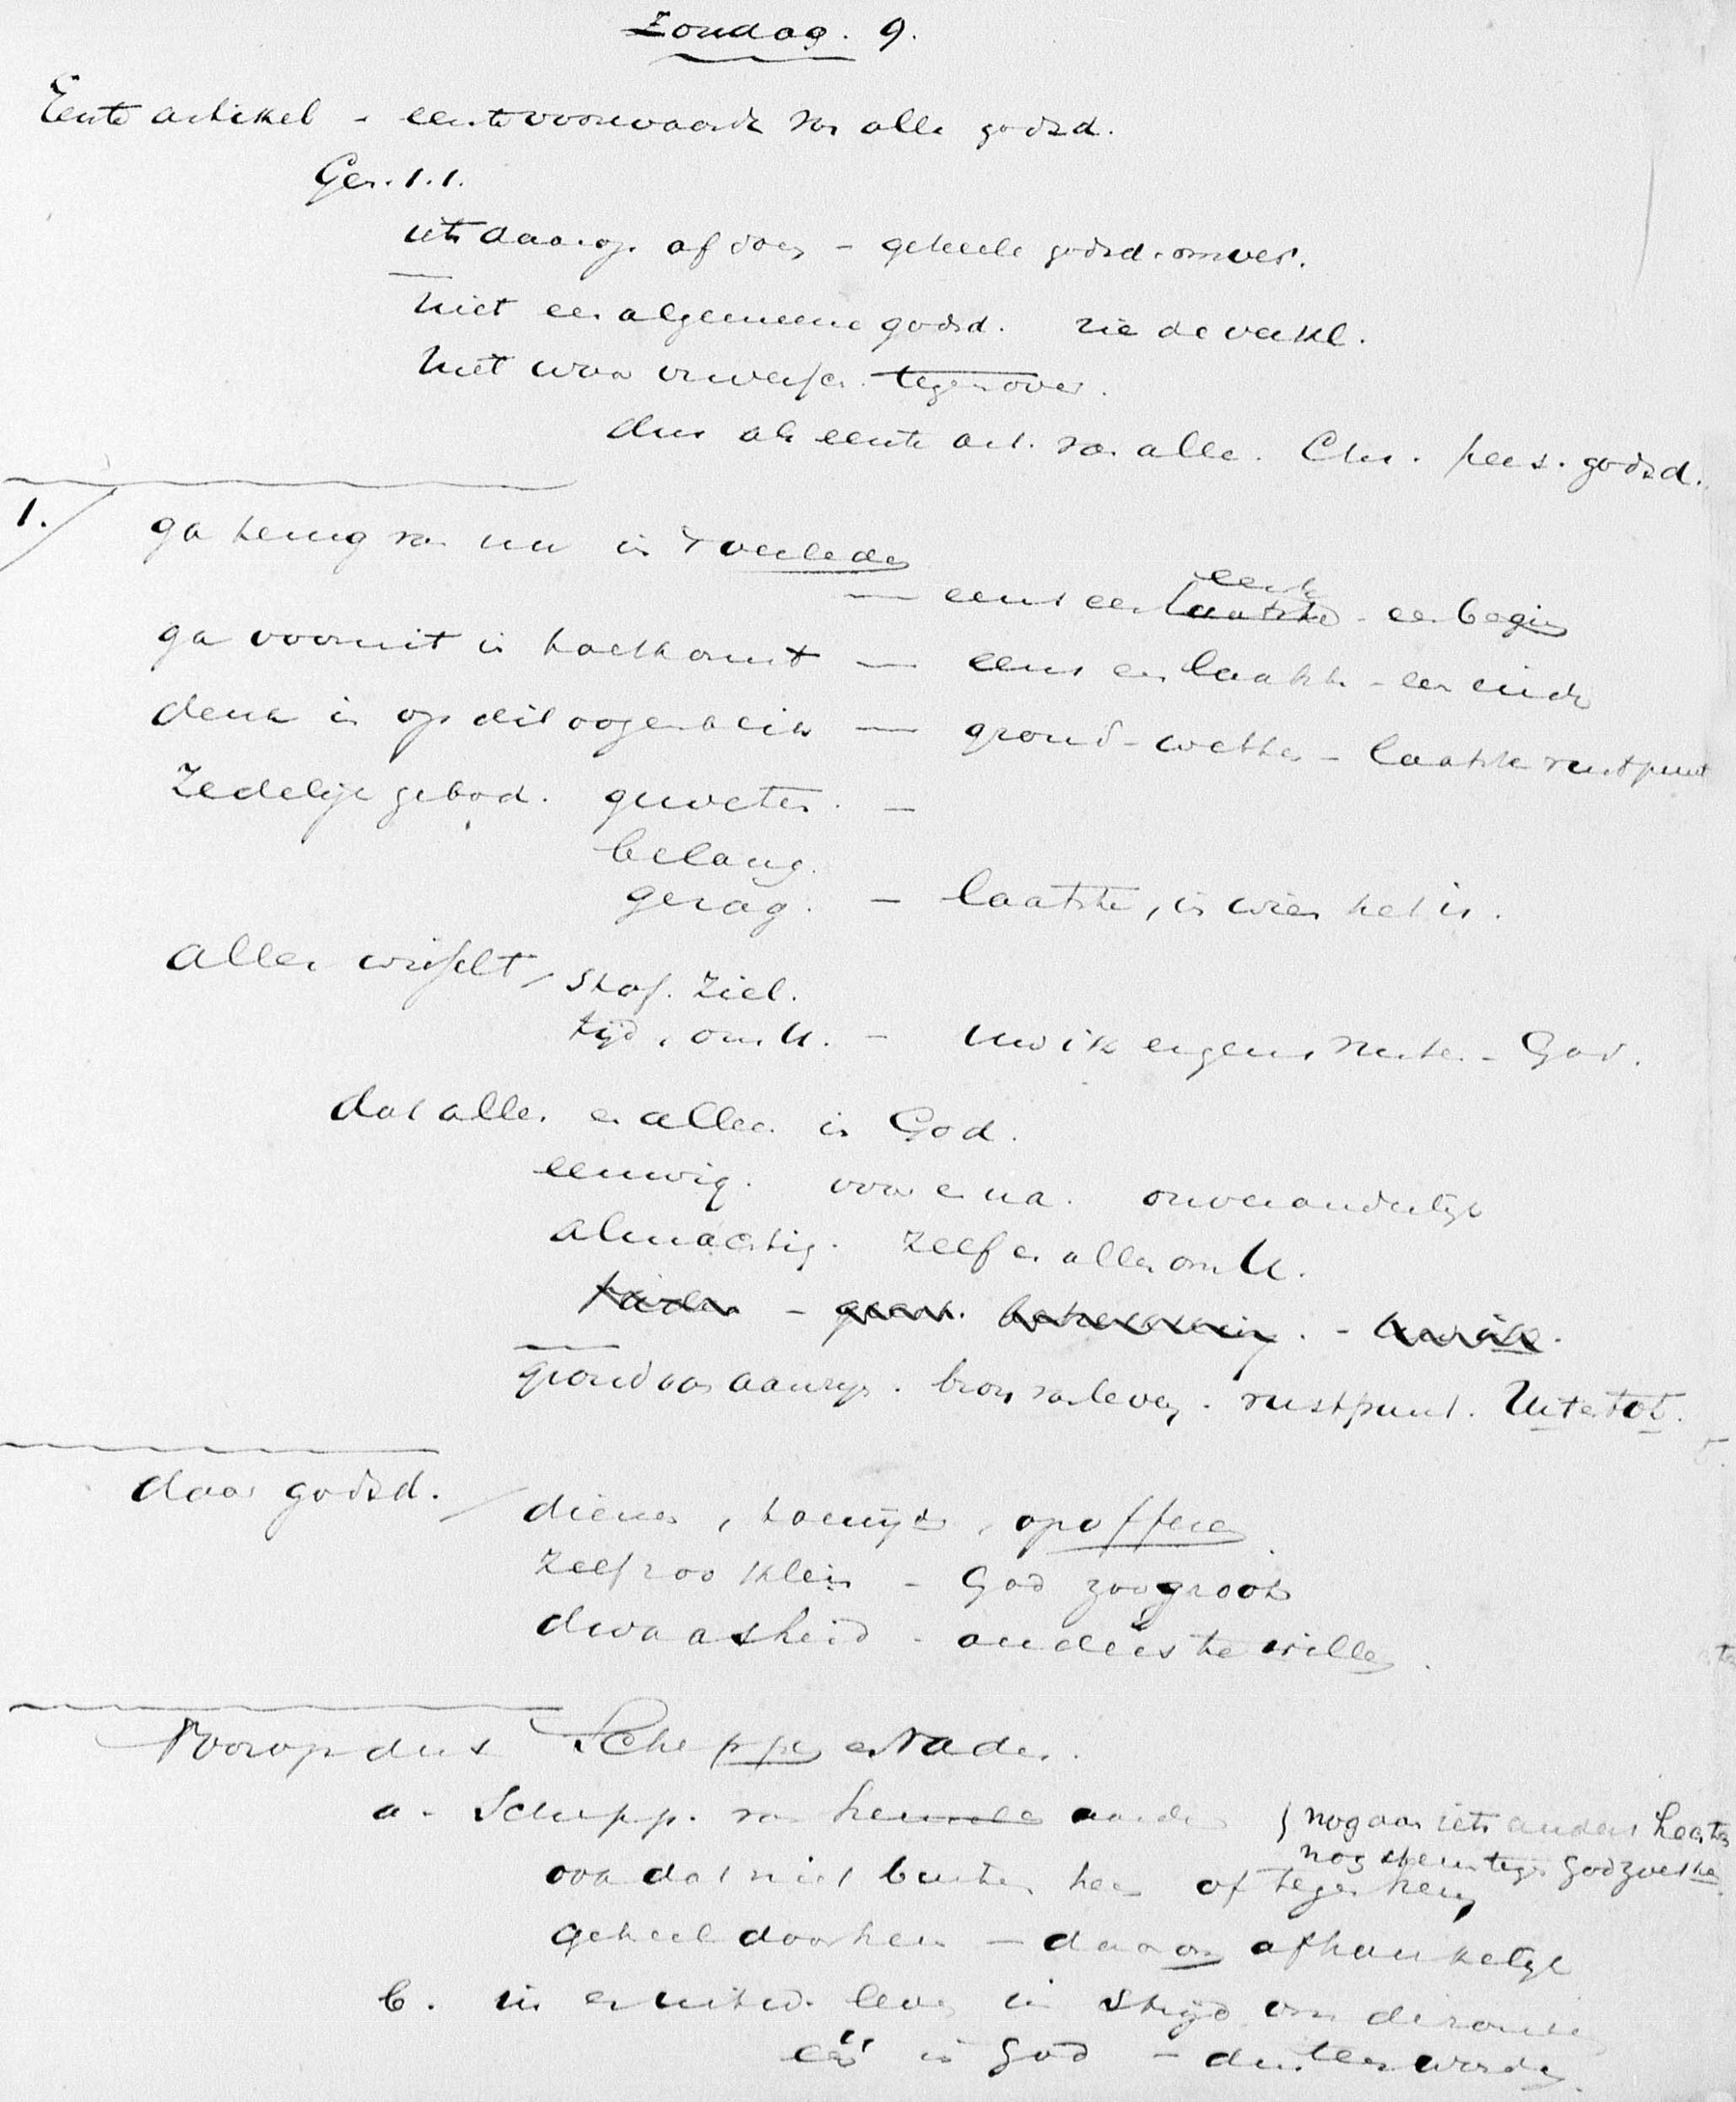 Zondag. 9.
Eerste artikel - eerste voorwaarde van alle godsd.
Gen. 1.1.
iets daarop af doen - geheele godsd. omver.
niet een algemeene godsd. zie de verkl.
niet waar tegenover.
dus als eerste art. van alle. Chr. godsd.
1. ga terug van nu in 't verleden
eerste
- eens een laatste - een begin
ga vooruit in toekomst - eens een laatste - een einde
denk in op dit oogenblik - grond - wetten - laatste rustpunt
Zedelijk gebod. geweten. -
belang.
gezag. - laatste, in wien het is.
alles wisselt / stof. ziel.
tijd, om U. - Uw ik ergens rusten - God.
dat alles en allen in God.
eeuwig. voor en na. onveranderlijk
almachtig. zelf en alles om U.
grond van aanzijn. bron van leven. rustpunt. Uit en tot.
daar godsd. / dienen, toewijden, opofferen
zelf zoo klein - God zoo groot
dwaasheid - anders te willen.
Voorop dus Schepper en Vader.
a. Schepp. van hemel en aarde { nog aan iets anders hechten
nog steun tegen God zoeken
ook dat niet buiten hem of tegen hem
geheel door hem - daarom afhankelijk
b. in en uitw. leven in strijd om
één in God - dus één worden.